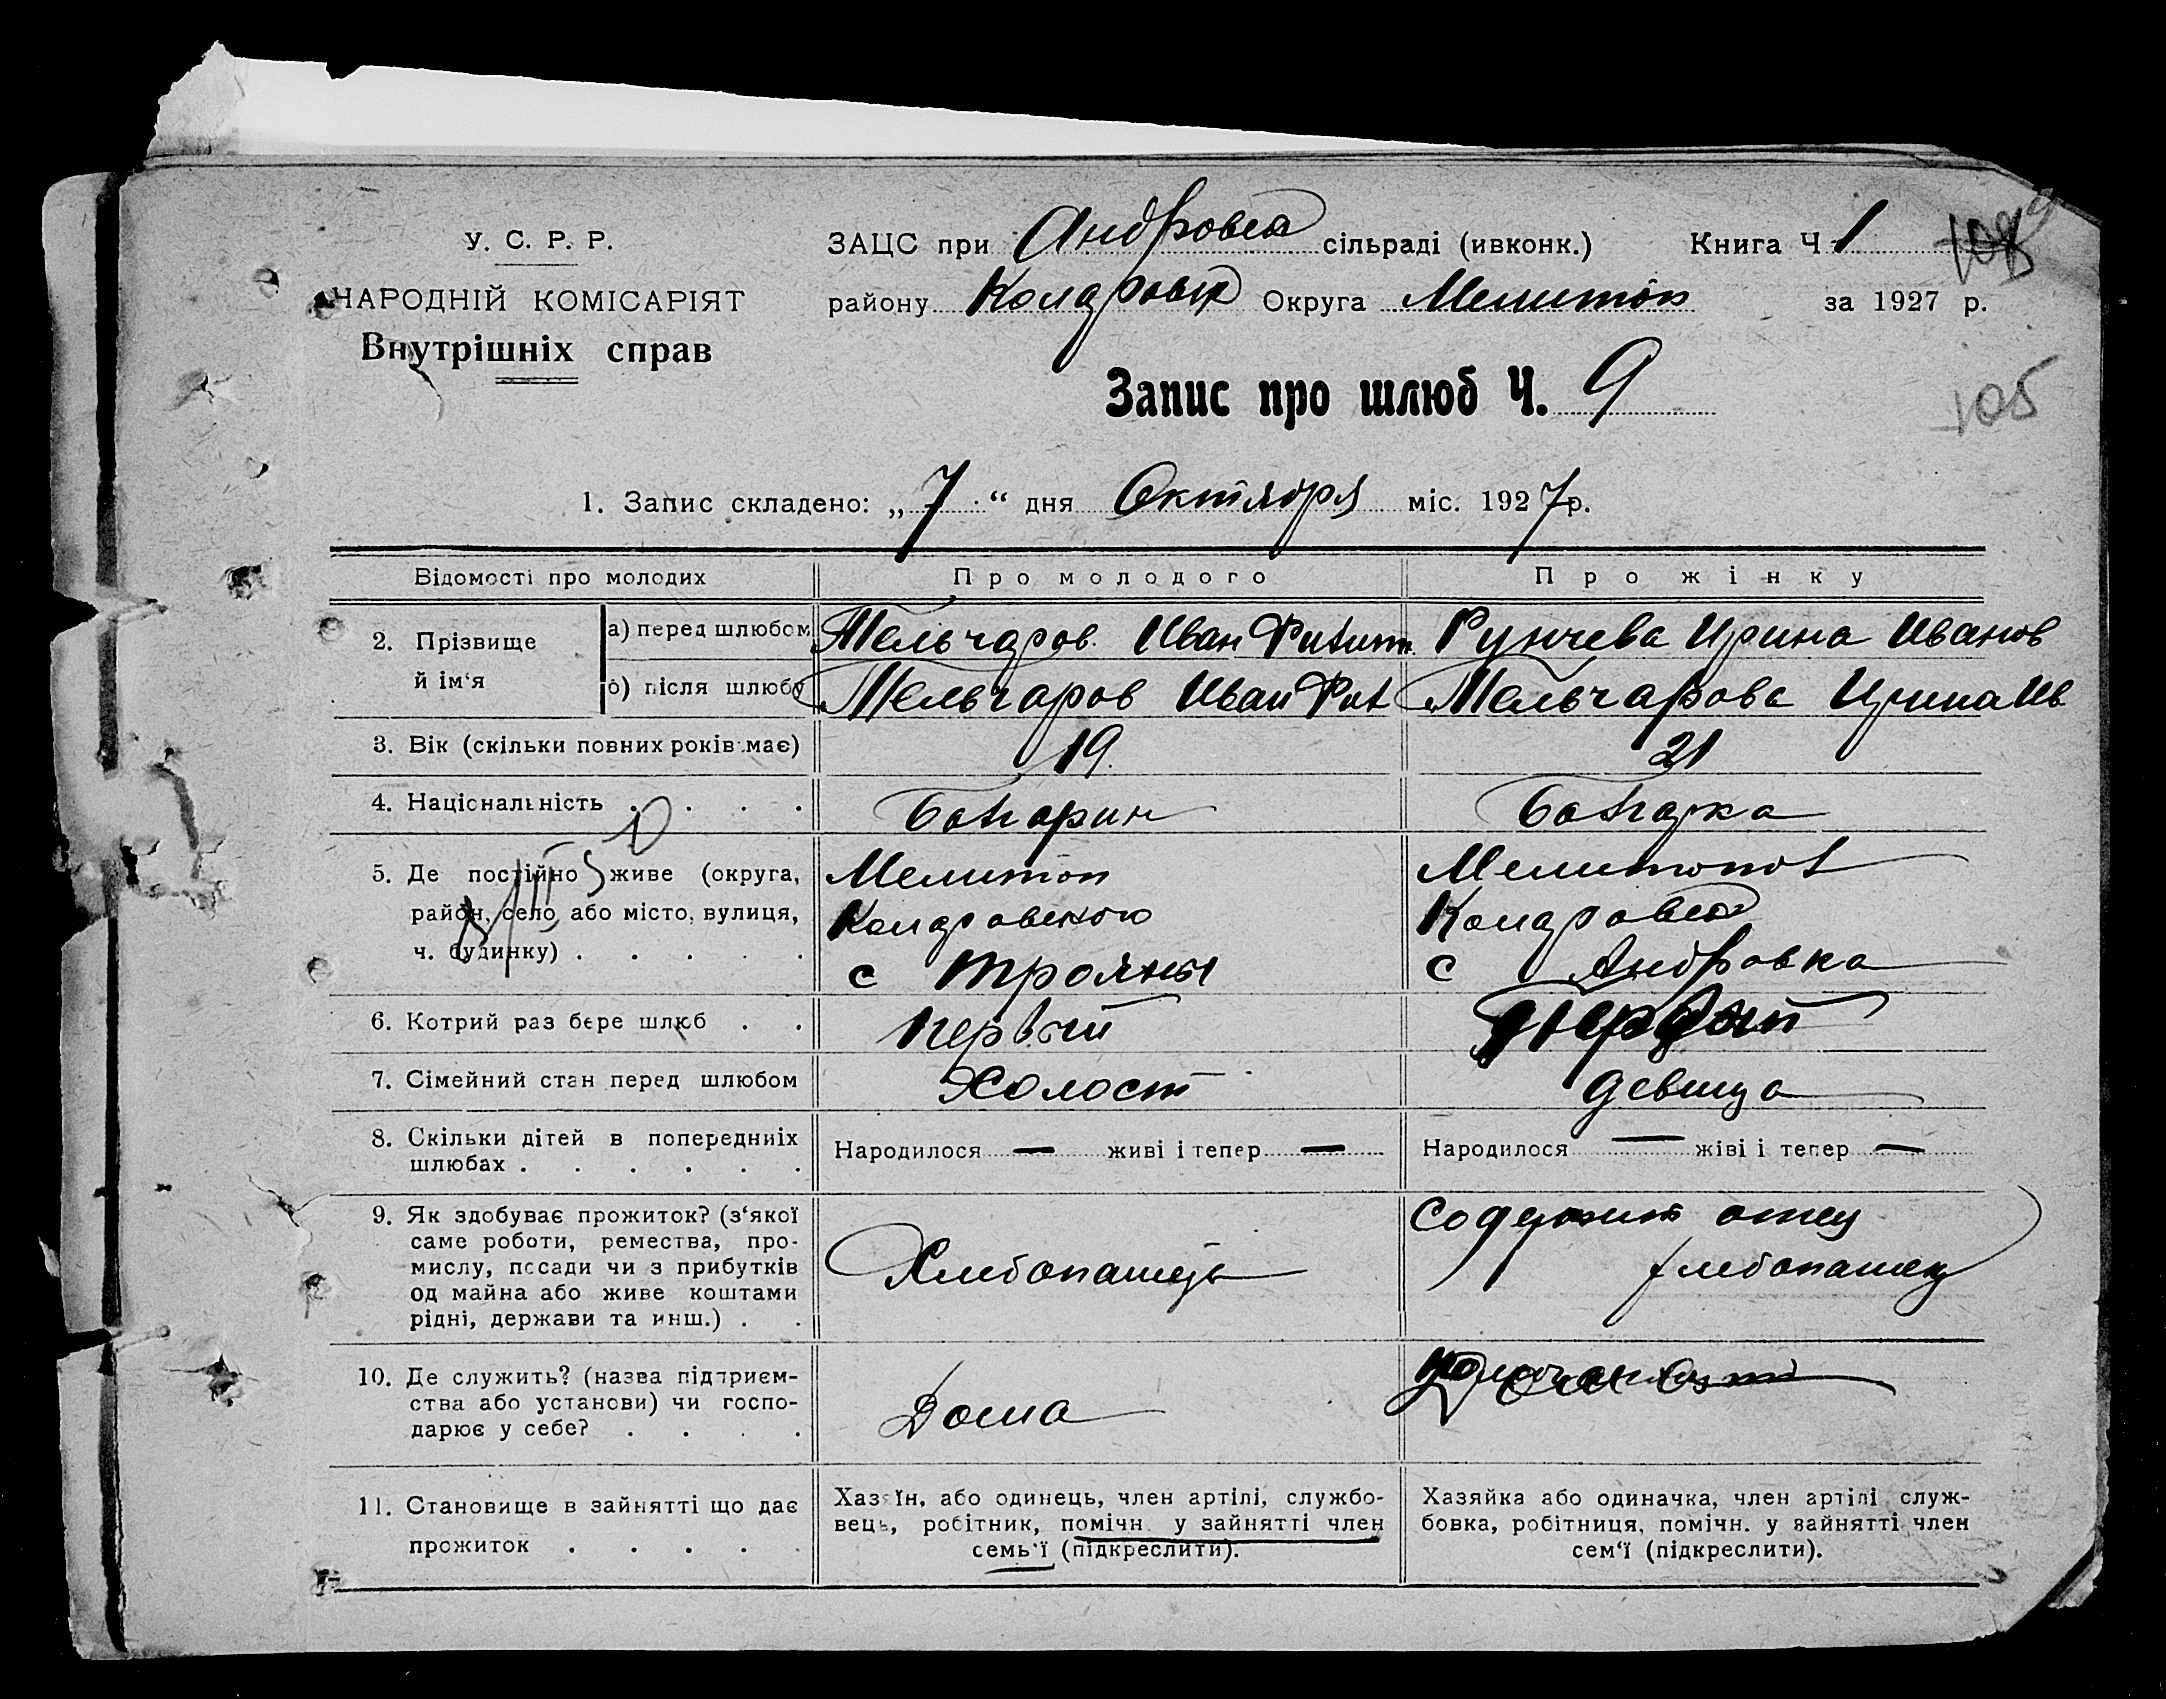 У. С. Р. Р.
НАРОДНІЙ КОМІСАРІЯТ
Внутрішніх справ
ЗАЦС при Андровск сільраді (ивконк.) Книга Ч 1
108
району Коларовск Округа Мелитоп за 1927 р.
Запис про шлюб Ч. 9
105
1. Запис складено: „7“ дня Октября міс. 1927 р.
Відомості про молодих Про молодого Про жінку
2. Прізвище й ім‘я
а) перед шлюбом Мельчаров Иван Фил Рунчева Ирина Иванов
б) після шлюбу Мельчаров Иван Фил Мельчарова Ирина Ив
3. Вік (скільки повних років має) 19. 21
4. Національність . . . . Болгарин Болгарка
5. Де постійно живе (округа, Мелитоп Мелитопол
район, село або місто, вулиця,
ч. будинку) . . . . . с Трояны с Андровка
6. Котрий раз бере шлюб . . первый первый
7. Сімейний стан перед шлюбом Холост девица
8. Скільки дітей в попередниіх Народилося — живі і тепер — Народилося — жіві і тепер —
шлюбах . . . . . .
9. Як здобуває прожиток? (з‘якої Содержит отец
саме роботи, ремества, про-
мислу, посади чи з прибутків Хлебопашец хлебопашец
од майна або живе коштами
рідні, держави та инш.) . .
10. Де служить? (назва підприєм-
ства або установи) чи госпо- Дома
дарює у себе? . . . .
11. Становище в зайнятті що дає
прожиток . . . . .
Хазяїн, або одинець, член артілі, службо-
вець, робітник, помічн. у зайнятті член
семь'ї (підкреслити).
Хазяйка або одиначка, член артілі служ-
бовка, робітниця, помічн. у зайнятті член
сем‘ї (підкреслити).